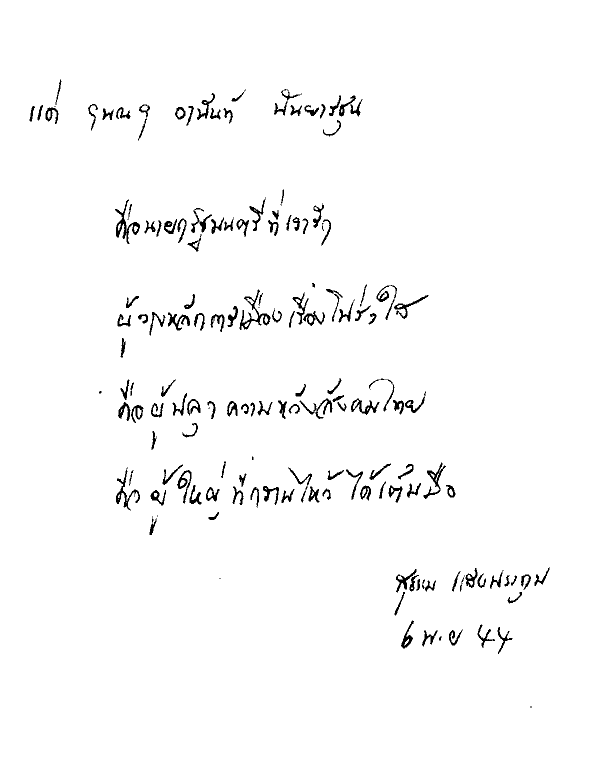 แด่ คุณ อานันท์ ปันยารชุน
คือนายกรัฐมนตรีที่เรารัก
ผู้วางหลักการเมืองเรื่องโปร่งใส
คือผู้ปลุกความหวังสังคมไทย
คือผู้ใหญ่ที่กราบไหว้ได้เต็มมือ
สุธรรม แสงประทุม
6 พ.ย 44